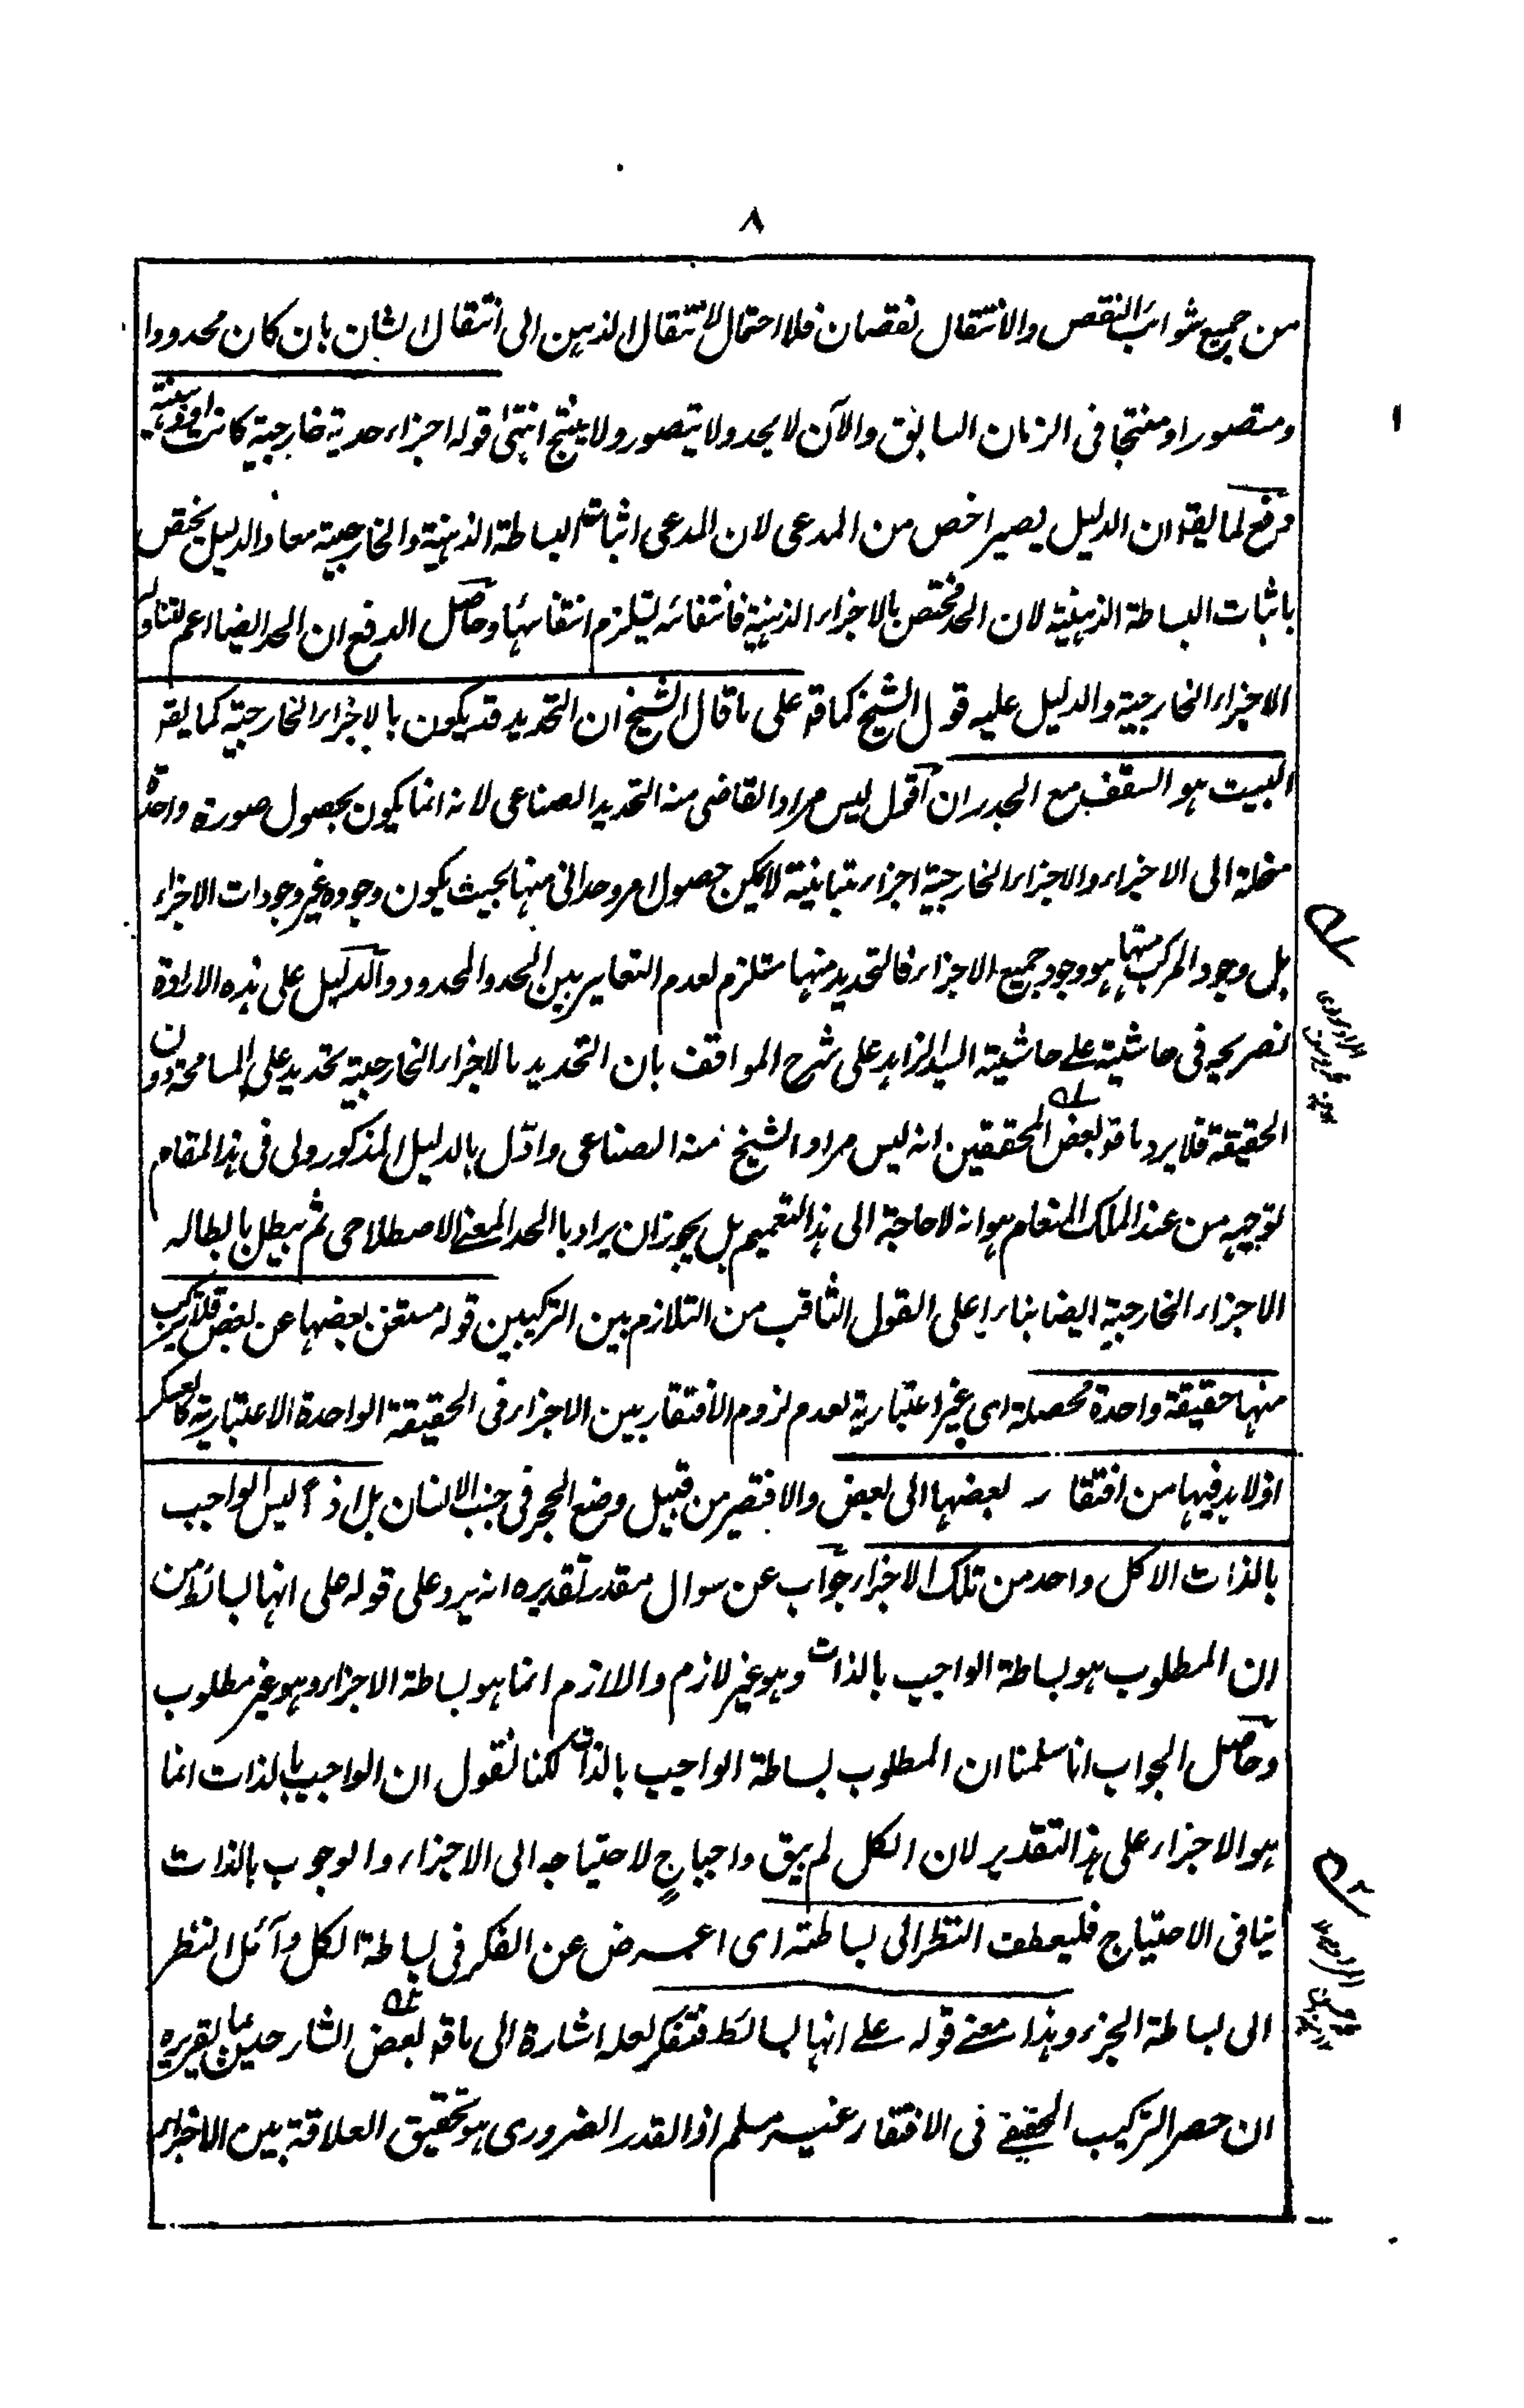 ٨
من جميع شوائب النقص والانتقال نقصان فلا احتمال لانتقال الذهن الى انتقال الشان بان كان محدودا
ومتصورا ومنتجا فى الزمان السابق والآن لا يحد ولا يتصور ولا ينتج انتهى قوله اجزاء حدية خارجية كانت او ذهنية
دفع لما يقه ان الدليل يصير اخص من المدعى لان المدعى اثبات البساطة الذهنية والخارجية معا والدليل يختص
باثبات البساطة الذهنية لان الحد مختص بالاجزاء الذهنية فانتفائه يستلزم انتفائها وحاصل الدفع ان الحد ايضا اعم لتناوله
الاجزاء الخارجية والدليل عليه قول الشيخ كما قه على ما قال الشيخ ان التحديد قد يكون بالاجزاء الخارجية كما يقه
البيت هو السقف مع الجدران اقول ليس مراد القاضى منه التحديد الصناعى لانه انما يكون بحصول صورة واحدة
منحلة الى الاجزاء والاجزاء الخارجية اجزاء متباينة لا يمكن حصول امر وحدانى منها بحيث يكون وجوده غير وجودات الاجزاء
بل وجود المركب منها هو وجود جميع الاجزاء فالتحديد منها مستلزم لعدم التغاير بين الحد والمحدود والدليل على هذه الارادة
تصريحه فى حاشيته على حاشية السيد الزاهد على شرح المواقف بان التحديد بالاجزاء الخارجية تحديد على المسامحة دون
الحقيقة فلا يرد ما قه بعض المحققين انه ليس مراد الشيخ منه الصناعى وادّل بالدليل المذكور ولى فى هذا المقام
توجيه من عند الملك المنعام هو انه لا حاجة الى هذا التعميم بل يجوز ان يراد بالحد المعنى الاصطلاحى ثم يبطل بابطاله
الاجزاء الخارجية ايضا بناء على القول الثاقب من التلازم بين التركيبين قوله مستغن بعضها عن بعض فلا يتركب
منها حقيقة واحدة محصلة اى غير اعتبارية لعدم لزوم الافتقار بين الاجزاء فى الحقيقة الواحدة الاعتبارية كالعسكر
اذ لا بد فيها من افتقار بعضها الى بعض والا فتصير من قبيل وضع الحجر فى جنب الانسان بل اذ أ ليس الواجب
بالذات الا كل واحد من تلك الاجزاء جواب عن سوال مقدر تقديره انه يرد على قوله على انها بسائط من
ان المطلوب هو بساطة الواجب بالذات وهو غير لازم واللازم انما هو بساطة الاجزاء وهو غير مطلوب
وحاصل الجواب انا سلمنا ان المطلوب بساطة الواجب بالذات لكنا نقول ان الواجب بالذات انما
هو الاجزاء على هذا التقدير لان الكل لم يبق واجبا ح لاحتياجه الى الاجزاء والوجوب بالذات
ينافى الاحتياج فليعطف النظر الى بساطته اى اعرض عن الفكر فى بساطة الكل وآئل النظر
الى بساطة الجزء وهذا معنى قوله على انها بسائط فتفكر لعله اشارة الى ما قه بعض الشارحين بما تقريره
ان حصر التركيب الحقيقى فى الافتقار غير مسلم اذ القدر الضرورى هو تحقيق العلاقة بين الاجزاء